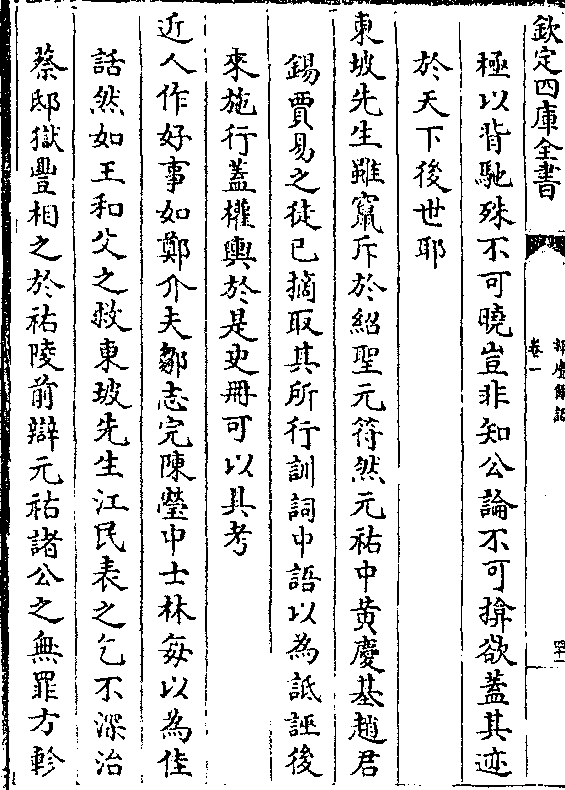 欽定四庫全書
卷一
極以背馳殊不可曉豈非知公論不可揜欲蓋其迹
於天下後世耶
東坡先生雖竄斥於紹聖元符然元祐中黄慶基趙君
錫賈易之徒已摘取其所行訓詞中語以為詆誣後
來施行蓋權輿於是史冊可以具考
近人作好事如鄭介夫鄒志完陳瑩中士林每以為佳
話然如王和父之救東坡先生江民表之乞不深治
蔡邸獄豐相之於祐陵前辯元祐諸公之無罪方軫